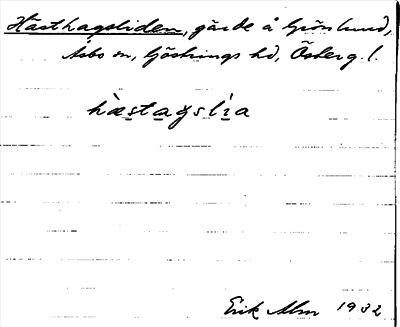 Hästhagsliden, gärde å Grönlund,
Åsbo sn, Göstrings hd, Österg. l.
hæstagslia
Erik Alm 1932